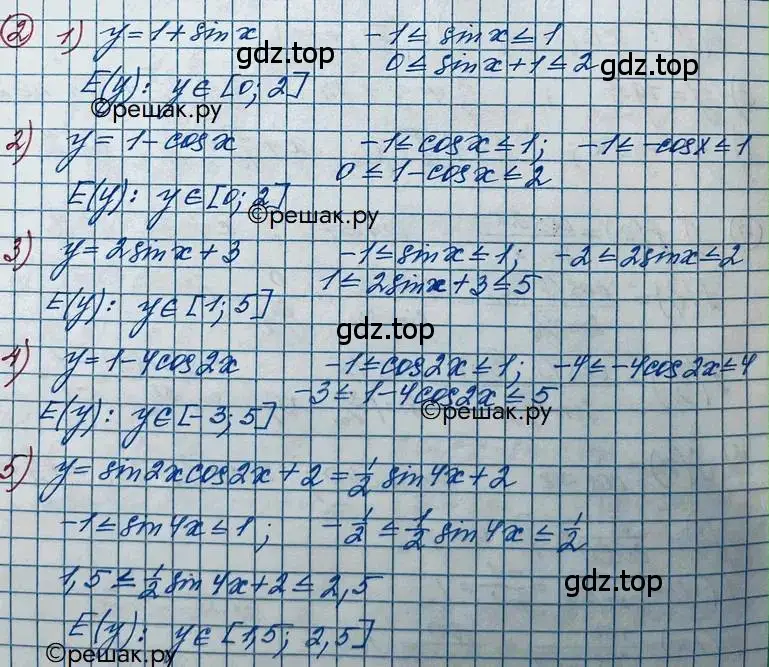 ② 1) y = 1 + sin x   -1 ≤ sin x ≤ 1
gdz.top
0 ≤ sin x + 1 ≤ 2
gdz.top
E(y): y ∈ [0; 2]
©решак.ру
2) y = 1 - cos x   -1 ≤ cos x ≤ 1;  -1 ≤ -cos x ≤ 1
0 ≤ 1 - cos x ≤ 2
E(y): y ∈ [0; 2]
©решак.ру
3) y = 2sin x + 3   -1 ≤ sin x ≤ 1;  -2 ≤ 2sin x ≤ 2
1 ≤ 2sin x + 3 ≤ 5
E(y): y ∈ [1; 5]
gdz.top
4) y = 1 - 4cos 2x   -1 ≤ cos 2x ≤ 1;  -4 ≤ -4cos 2x ≤ 4
-3 ≤ 1 - 4cos 2x ≤ 5
E(y): y ∈ [-3; 5]
©решак.ру
5) y = sin 2x cos 2x + 2 = 1/2 sin 4x + 2
-1 ≤ sin 4x ≤ 1;   -1/2 ≤ 1/2 sin 4x ≤ 1/2
1,5 ≤ 1/2 sin 4x + 2 ≤ 2,5
gdz.top
E(y): y ∈ [1,5; 2,5]
©решак.ру